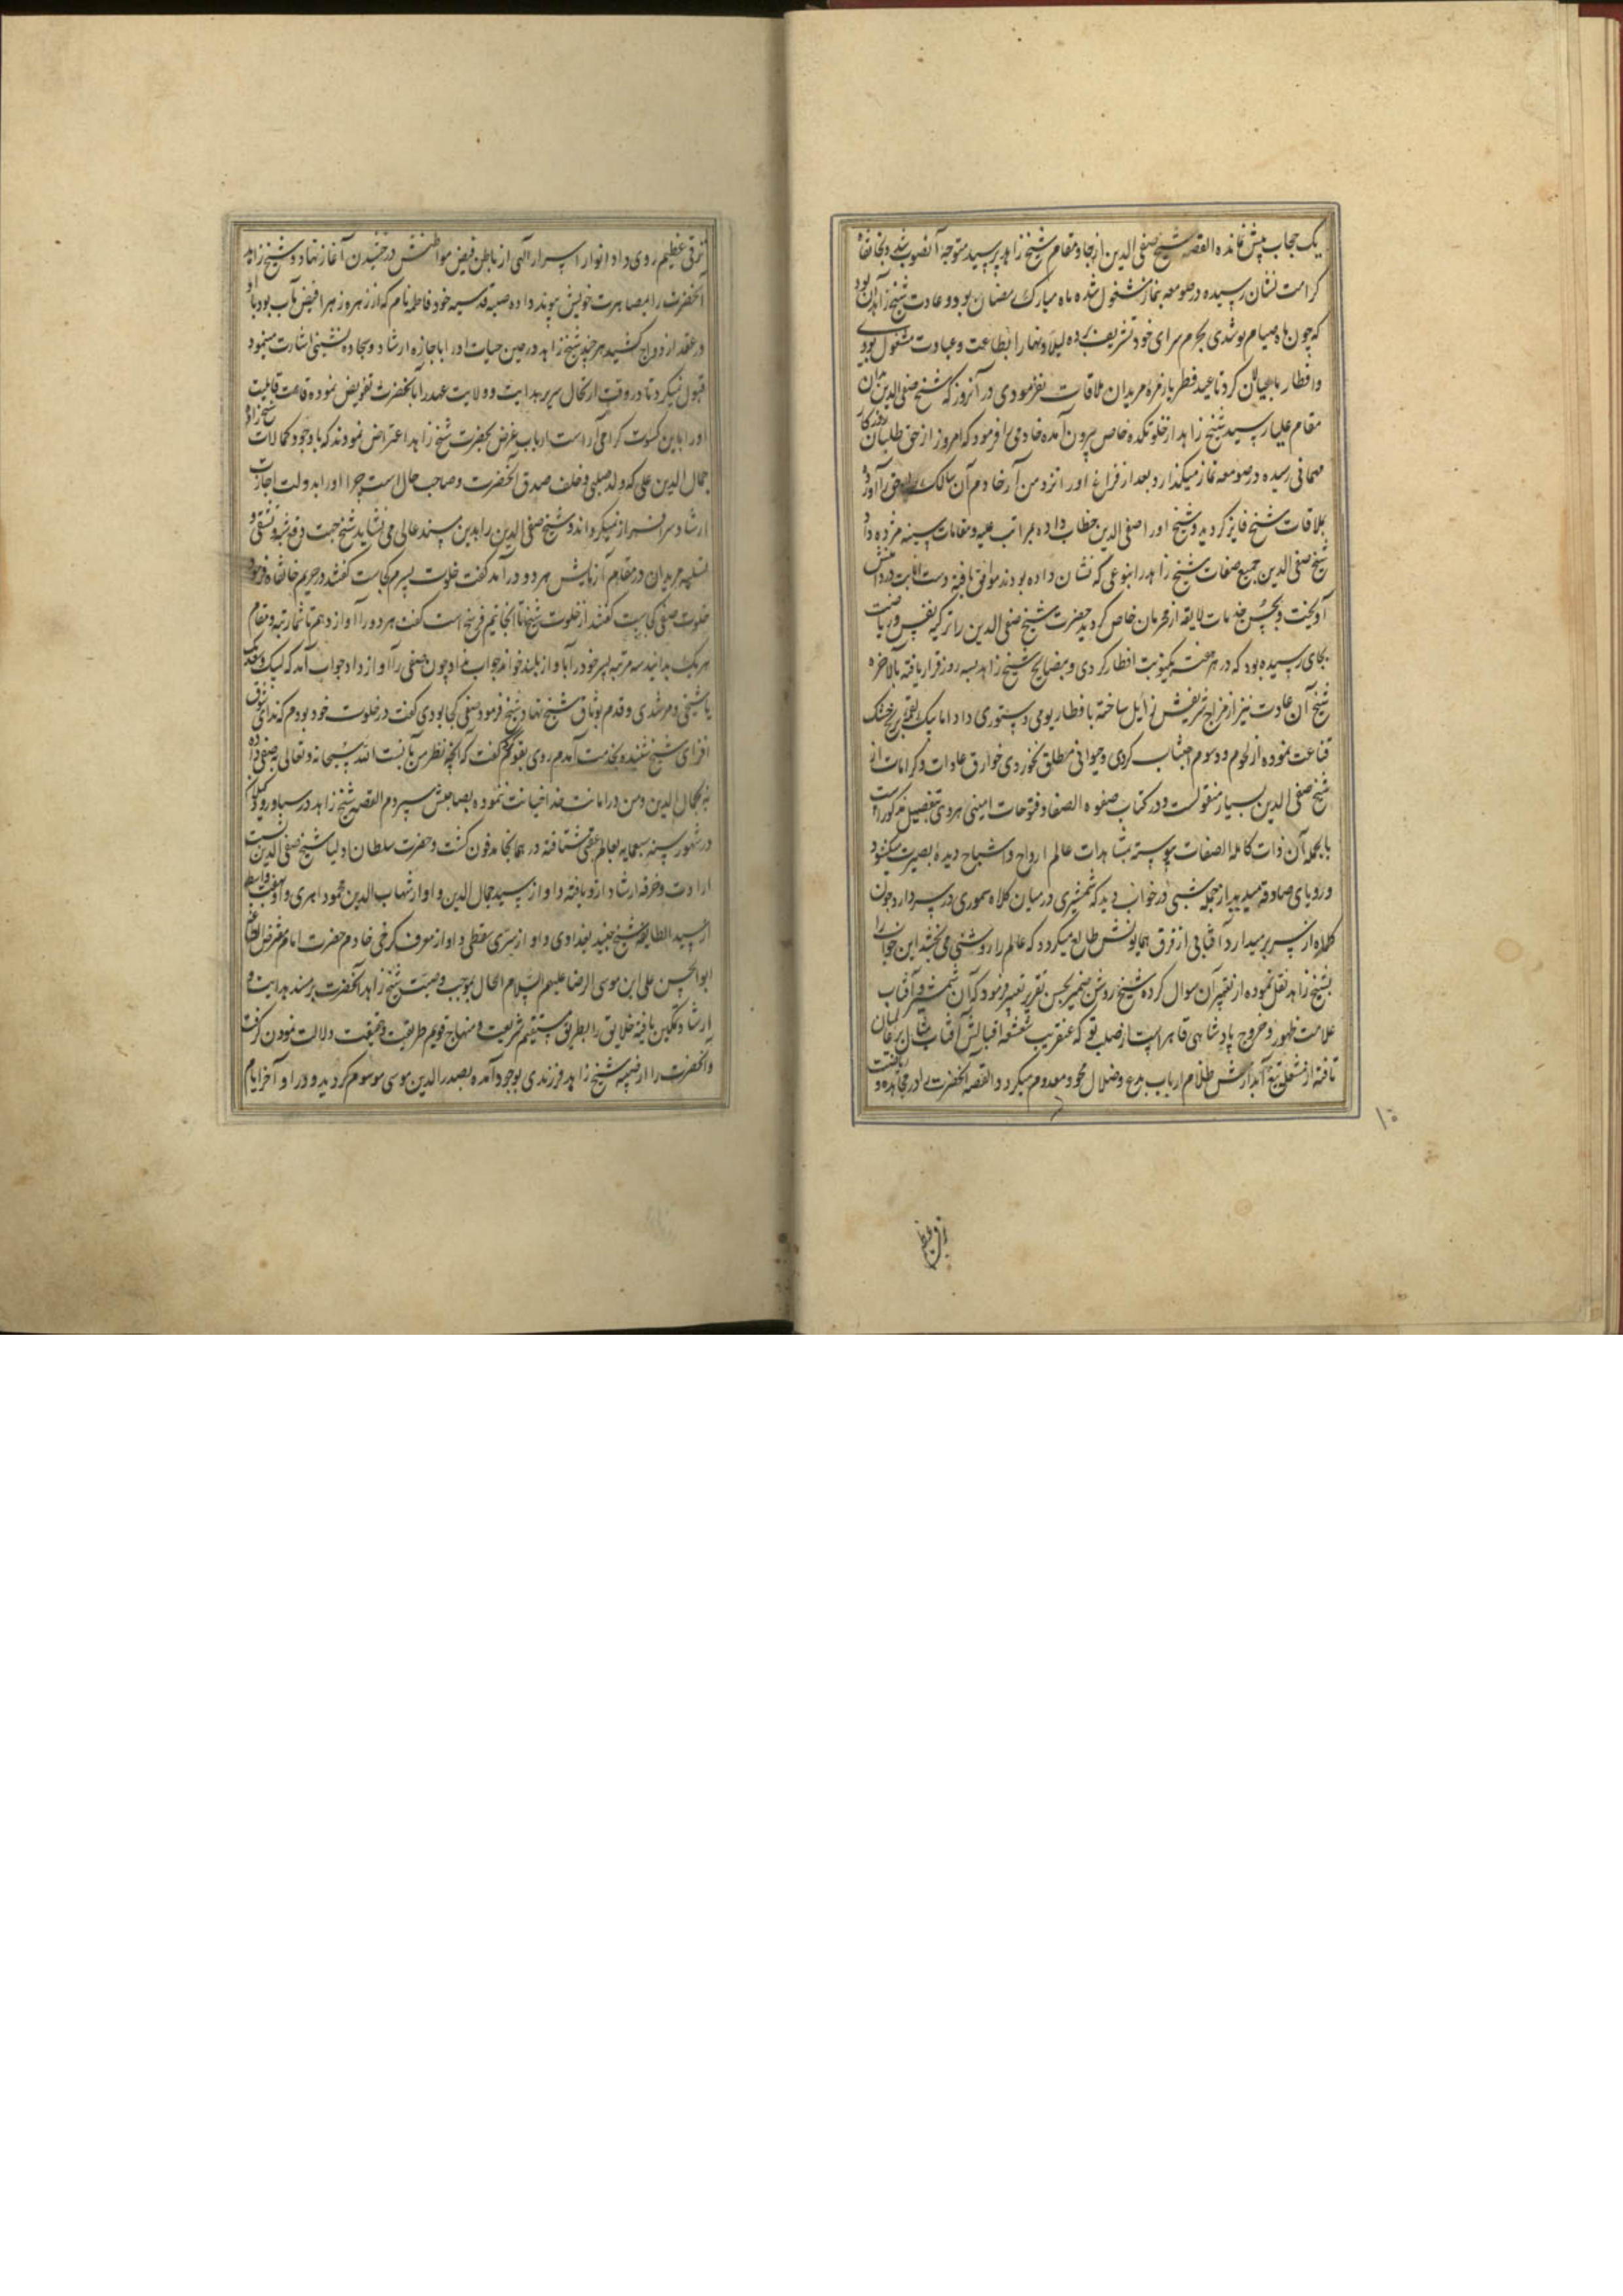 یک حجاب پیش نمانده القصه شیخ صفی الدین از جا و مقام شیخ زاهد پرسید متوجه آنصوب شد و بخانقاه
کرامت نشان رسیده در صومعه بنماز مشغول شده ماه مبارک رمضان بود و عادت شیخ زاهد آن بود
که چون ماه صیام نو شدی بحرم سرای خود تشریف برده لیلا و نهارا بطاعت و عبادت مشغول بودی
و افطار با عیالان کردی تا عید فطر با زمره مریدان ملاقات نفرمودی در آنروز که شیخ صفی الدین بدان
مقام علیا رسید شیخ زاهد از خلوتکده خاص بیرون آمده خادمی را فرمود که امروز از حق طلبان روزگار
مهمانی رسیده در صومعه نماز میگذارد بعد از فراغ او را نزد من آر خادم آن سالک راه حق را آورده
بملاقات شیخ فایز گردید و شیخ او را صفی الدین خطاب داده بمراتب علیه و مقامات سنیه مژده داد
شیخ صفی الدین جمیع صفات شیخ زاهد را بنوعی که نشان داده بودند موافق یافته دست انابت در دامنش
آویخت و بحسن خدمات لایقه از محرمان خاص گردید حضرت شیخ صفی الدین را تزکیه نفس و ریاضت
بجای رسیده بود که در هر هفته یکنوبت افطار کردی و بنصایح شیخ زاهد بسه روز قرار یافته بالاخره
شیخ آن عادت نیز از مزاج شریفش زایل ساخته بافطار یومی دستوری داد اما بیک لقمه برنج خشک
قناعت نموده از لحوم و دسوم اجتناب کردی و حیوانی مطلق نخوردی خوارق عادات و کرامات از
شیخ صفی الدین بسیار منقولست و در کتاب صفوه الصفا و فتوحات امینی هروی بتفصیل مذکور است
بالجمله آن ذات کامله الصفات پیوسته مشاهدات عالم ارواح و اشباح دیده بصیرت میگشود
و رویای صادقه میدید از جمله شبی در خواب دید که شمشیری در میان کلاه سموری در سر دارد چون
کلاه از سر برمیدارد آفتابی از فرق همایونش طالع میگردد که عالم را روشنی می بخشد این خواب را
بشیخ زاهد نقل نموده از تعبیر آن سوال کرده شیخ روشن ضمیر بحسن تقریر تعبیر فرمود که آن شمشیر و آفتاب
علامت ظهور و خروج پادشاهی قاهر است از صلب تو که عنقریب شعشعه اقبالش آفتاب مثال بر عالمیان
تافته از مشعل تیغ آبدارش ظلام ارباب بدع و ضلال محو و معدوم میگردد القصه آنحضرت را در مجاهده و ریاضت
۱۰
ترقی عظیم روی داد و انوار اسرار الهی از باطن فیض مواطنش درخشیدن آغاز نهاد و شیخ زاهد
آنحضرت را بمصاهرت خویش پیوند داده صبیه قدسیه خود فاطمه نام که از زهره زهرا فیض یاب بود با او
در عقد ازدواج کشید هر چند شیخ زاهد در حین حیات او را باجازه ارشاد و سجاده نشینی اشارت مینمود
قبول نمیکرد تا در وقت ارتحال سریر هدایت و ولایت عهد را بآنحضرت تفویض نموده قامت قابلیت
او را باین کسوت گرامی آراست ارباب غرض بحضرت شیخ زاهد اعتراض نمودند که با وجود کمالات شیخ زاده
جمال الدین علی که ولد صلبی و خلف صدق آنحضرت و صاحب حال است چرا او را بدولت اجازت
ارشاد سرافراز نمیگرداند و شیخ صفی الدین را بدین مسند عالی می نشاید شیخ جهت دفع شبهه و تشفی و
تسلیه مریدان در مقام آزمایش هر دو در آمد گفت خلوت پسرم کجاست گفتند در حریم خانقاه فرمود
خلوت صفی کجاست گفتند از خلوت شیخ تا آنجا نیم فرسخ است گفت هر دو را آواز دهم تا شما رتبه و مقام
هر یک بدانید سه مرتبه پسر خود را بآواز بلند خواند جواب نداد چون صفی را آواز داد جواب آمد که لبیک و سعدیک
یا شیخی و مرشدی و قدم بوثاق شیخ نهاد شیخ فرمود صفی کجا بودی گفت در خلوت خود بودم که ندای شوق
افزای شیخ شنیده بخدمت آمدم روی بقوم کرده گفت که آنچه نظر من بآنست الله سبحانه و تعالی به صفی داده
نه بجمال الدین و من در امانت خدا خیانت ننموده بصاحبش سپردم القصه شیخ زاهد در سیاورود گیلان
در شهور سنه سبعمایه بعالم عقبی شتافته در همانجا مدفون گشت و حضرت سلطان اولیا شیخ صفی الدین نسبت
ارادت و خرقه ارشاد از او یافته و او از سید جمال الدین و او از شهاب الدین محمود اهری و او بهفت واسطه
از سید الطایفه شیخ جنید بغدادی و او از سری سقطی و او از معروف کرخی خادم حضرت امام مفترض الطاعه
ابو الحسن علی ابن موسی الرضا علیهم السلام الحال بموجب وصیت شیخ زاهد آنحضرت بر مسند هدایت و
ارشاد تمکین یافته خلایق را بطریق مستقیم شریعت و منهاج قویم طریقت و حقیقت دلالت نمودن گرفت
و آنحضرت را از صبیه شیخ زاهد فرزندی بوجود آمده بصدر الدین موسی موسوم گردید و در او آخر ایام